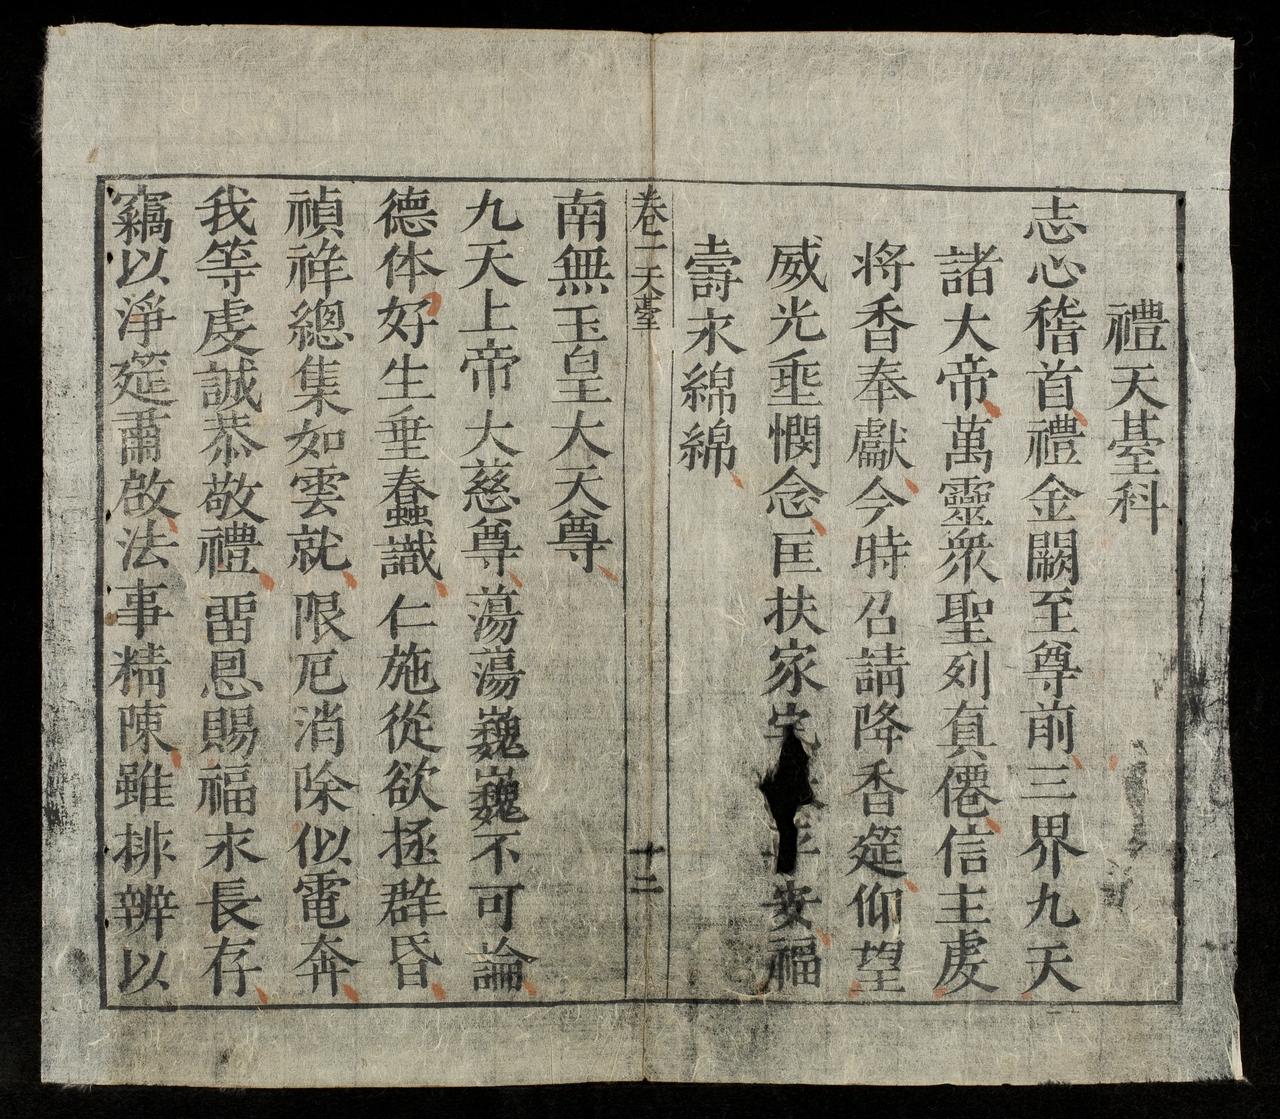 禮天䑓科
志心稽首禮金闕至尊前三界九天
諸大帝萬靈眾聖列真僊信主虔
將香奉獻今時召請降香筵仰望
威光垂憫念匡扶家宅平安福
壽永綿綿
卷二 天臺 十二
南無玉皇大天尊
九天上帝大慈尊蕩蕩巍巍不可論
德体好生垂蠢識仁施從欲拯群昏
禎祥總集如雲就限厄消除似電奔
我等虔誠恭敬禮畱恩賜福永長存
竊以淨筵肅啟法事精陳雖排辨以